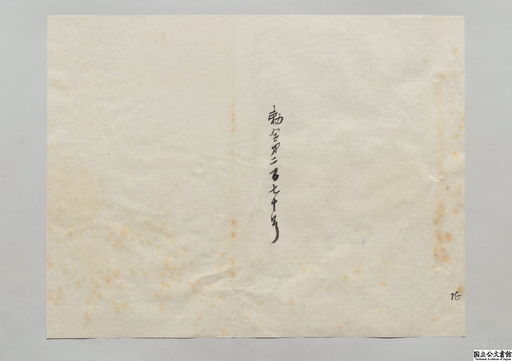 勅令第二百七十号
国立公文書館
National Archives of Japan